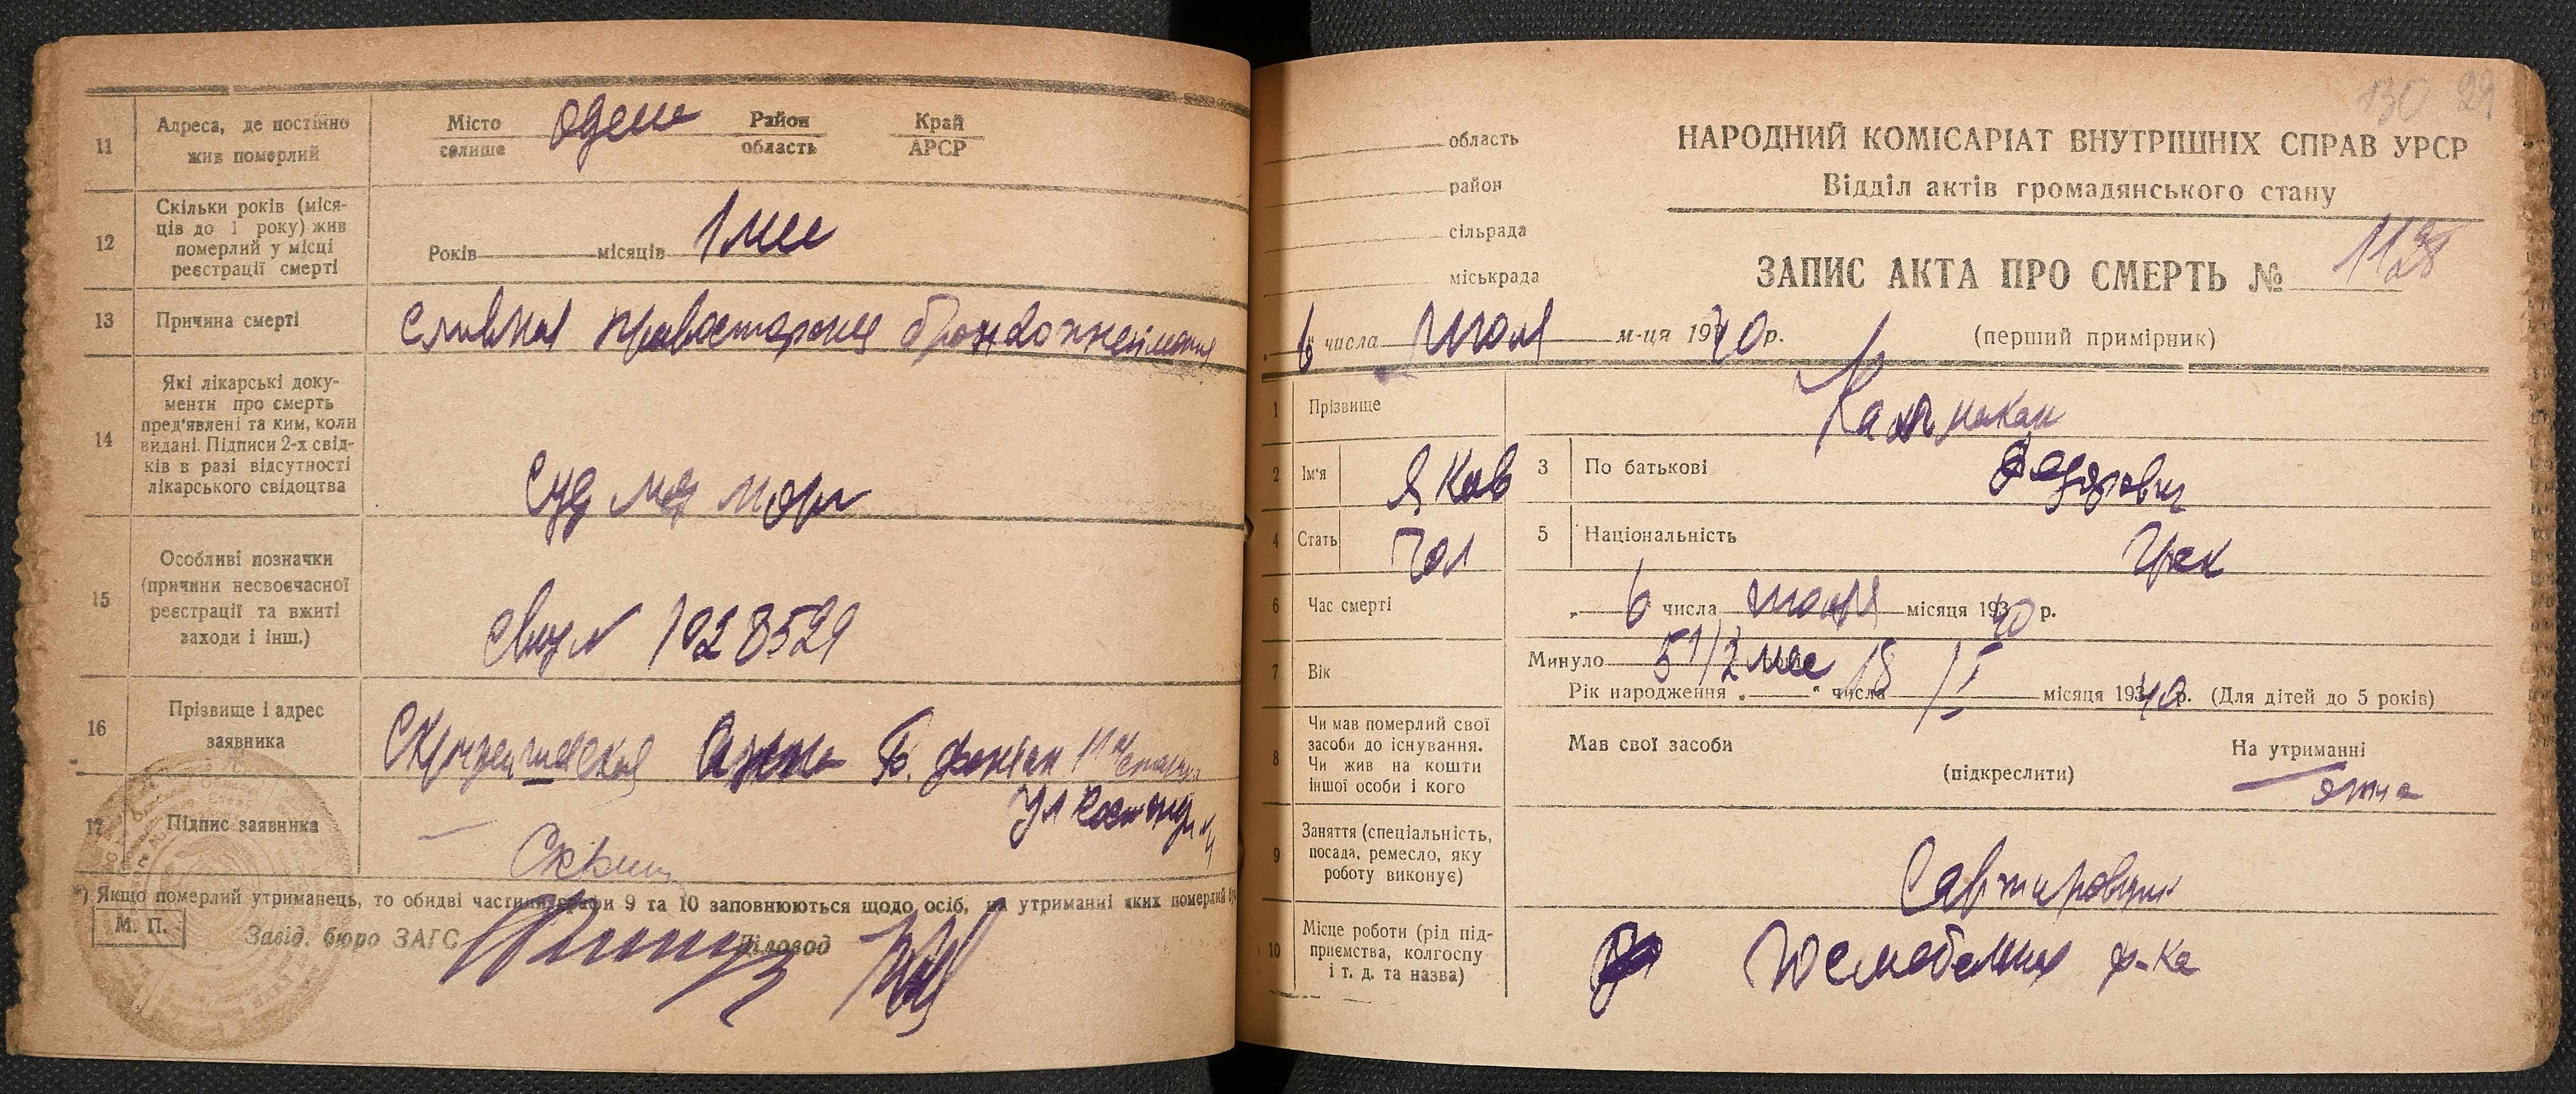 11
Адреса, де постійно
жив померлий
Місто
селище
Одеса
Район
область
Край
АРСР
12
Скільки років (міся-
ців до 1 року) жив
померлий у місці
реєстрації смерті
Років місяців 1 мес
13
Причина смерті
Сливная правосторонняя бронхопневмония
14
Які лікарські доку-
менти про смерть
пред'явлені та ким, коли
видані. Підписи 2-х свід-
ків в разі відсутності
лікарського свідоцтва
Суд мед морг
15
Особливі позначки
(причини несвоєчасної
реєстрації та вжиті
заходи і інш.)
1028529
16
Прізвище і адрес
заявника
Анна Б. Фонтан 11 станция
ул
17
Підпис заявника
*) Якщо померлий утриманець, то обидві частини графи 9 та 10 заповнюються щодо осіб, на утриманні яких померлий
М. П.
Завід. бюро ЗАГС
Діловод
130 29
область
район
сільрада
міськрада
НАРОДНИЙ КОМІСАРІАТ ВНУТРІШНІХ СПРАВ УРСР
Відділ актів громадянського стану
ЗАПИС АКТА ПРО СМЕРТЬ № 1128
„6" числа июля м-ця 1940р.
(перший примірник)
1
Прізвище
Кальмакан
2
Ім'я
Яков
3
По батькові
Федорович
4
Стать
Чол
5
Національність
Грек
6
Час смерті
„ 6 числа июля місяця 1940 р.
7
Вік
Минуло 5 1/2 мес 18/I
Рік народження „ " числа місяця 1940р. (Для дітей до 5 років)
8
Чи мав померлий свої
засоби до існування.
Чи жив на кошти
іншої особи і кого
Мав свої засоби
(підкреслити)
На утриманні
отца
9
Заняття (спеціальність,
посада, ремесло, яку
роботу виконує)
Сортировщик
10
Місце роботи (рід під-
приємства, колгоспу
і т. д. та назва)
ф-ка